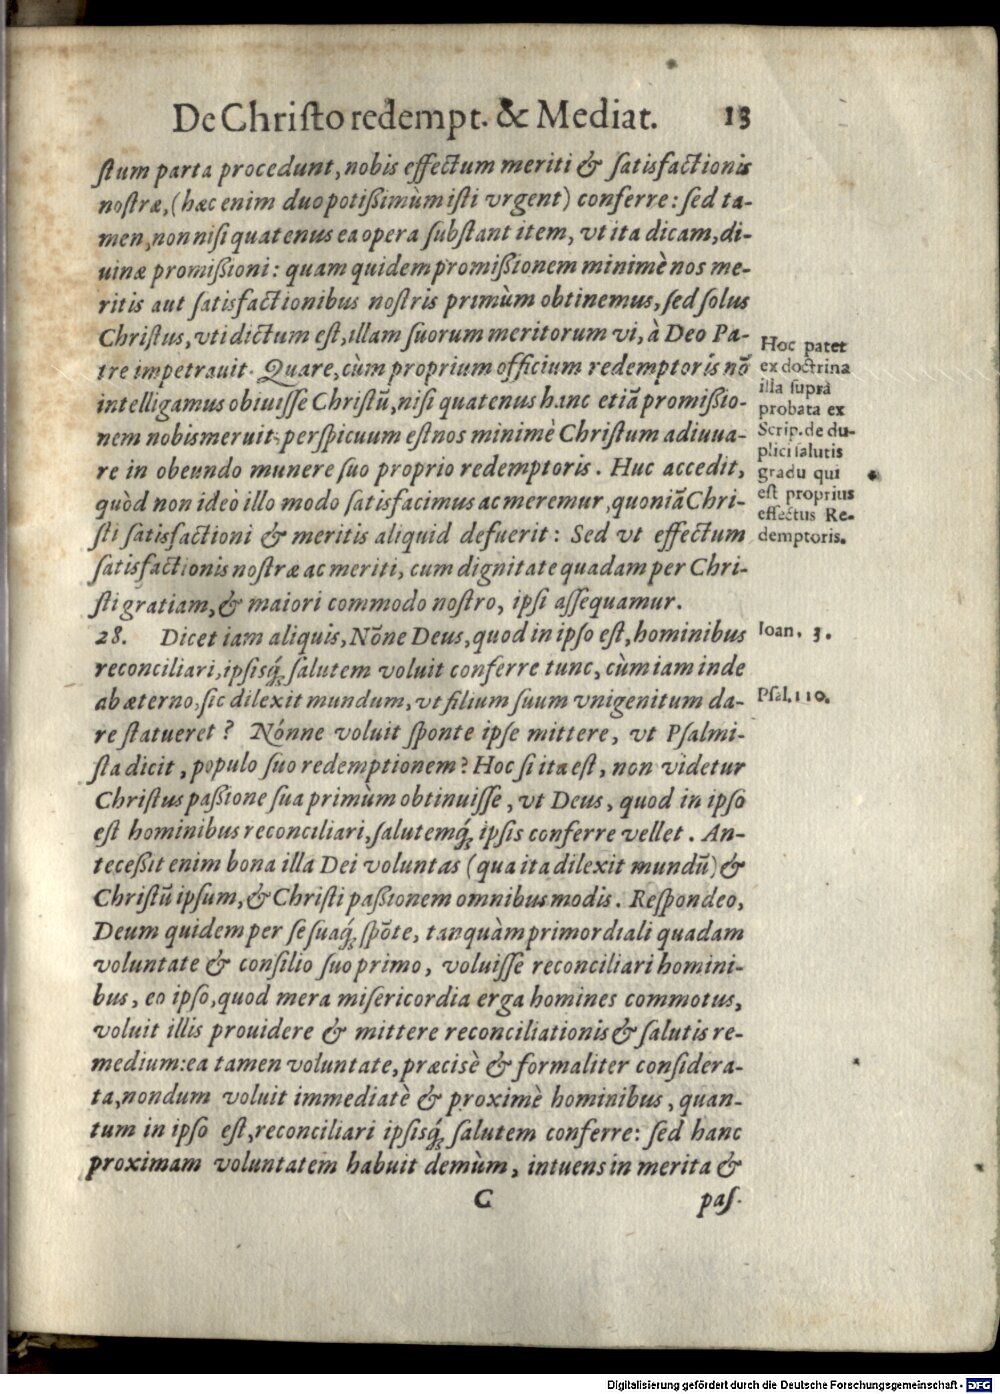 De Chriſto redempt. & Mediat. 13
ſtum parta procedunt, nobis effectum meriti & ſatisfactionis
noſtræ, (hæc enim duo potißimùm iſti vrgent) conferre: ſed ta-
men, non niſi quatenus ea opera ſubſtant item, vt ita dicam, di-
uinæ promißioni: quam quidem promißionem minimè nos me-
ritis aut ſatisfactionibus noſtris primùm obtinemus, ſed ſolus
Chriſtus, vti dictum eſt, illam ſuorum meritorum vi, à Deo Pa-
tre impetrauit. Quare, cùm proprium officium redemptoris nō
intelligamus obiuiſſe Chriſtū, niſi quatenus hanc etiā promißio-
nem nobis meruit; perſpicuum eſt nos minimè Chriſtum adiuua-
re in obeundo munere ſuo proprio redemptoris. Huc accedit,
quòd non ideò illo modo ſatisfacimus ac meremur, quoniā Chri-
ſti ſatisfactioni & meritis aliquid defuerit: Sed vt effectum
ſatisfactionis noſtræ ac meriti, cum dignitate quadam per Chri-
ſti gratiam, & maiori commodo noſtro, ipſi aſſequamur.
Hoc patet
ex doctrina
illa ſuprà
probata ex
Scrip. de du-
plici ſalutis
gradu qui
eſt proprius
effectus Re-
demptoris.
28. Dicet iam aliquis, Nōne Deus, quod in ipſo eſt, hominibus
reconciliari, ipſisq́; ſalutem voluit conferre tunc, cùm iam inde
ab æterno, ſic dilexit mundum, vt filium ſuum vnigenitum da-
re ſtatueret? Nónne voluit ſponte ipſe mittere, vt Pſalmi-
ſta dicit, populo ſuo redemptionem? Hoc ſi ita eſt, non videtur
Chriſtus paßione ſua primùm obtinuiſſe, vt Deus, quod in ipſo
eſt hominibus reconciliari, ſalutemq́; ipſis conferre vellet. An-
teceßit enim bona illa Dei voluntas (qua ita dilexit mundū) &
Chriſtū ipſum, & Chriſti paßionem omnibus modis. Reſpondeo,
Deum quidem per ſe ſuaq́; ſpōte, tanquàm primordiali quadam
voluntate & conſilio ſuo primo, voluiſſe reconciliari homini-
bus, eo ipſo, quod mera miſericordia erga homines commotus,
voluit illis prouidere & mittere reconciliationis & ſalutis re-
medium: ea tamen voluntate, præcisè & formaliter conſidera-
ta, nondum voluit immediatè & proximè hominibus, quan-
tum in ipſo eſt, reconciliari ipſisq́; ſalutem conferre: ſed hanc
proximam voluntatem habuit demùm, intuens in merita &
Ioan. 3.
Pſal. 110.
C paſ-
Digitalisierung gefördert durch die Deutsche Forschungsgemeinschaft - DFG